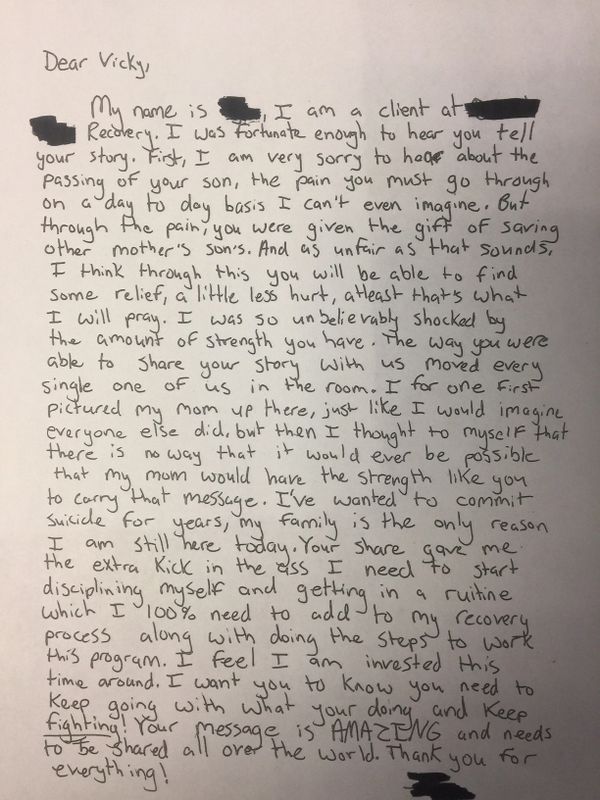 Dear Vicky,
My name is , I am a client at
Recovery. I was fortunate enough to hear you tell
your story. First, I am very sorry to hear about the
passing of your son, the pain you must go through
on a day to day basis I can't even imagine. But
through the pain, you were given the gift of saving
other mother's son's. And as unfair as that sounds,
I think through this you will be able to find
some relief, a little less hurt, atleast that's what
I will pray. I was so unbelievably shocked by
the amount of strength you have. The way you were
able to share your story with us moved every
single one of us in the room. I for one first
pictured my mom up there, just like I would imagine
everyone else did, but then I thought to myself that
there is no way that it would ever be possible
that my mom would have the strength like you
to carry that message. I've wanted to commit
suicide for years, my family is the only reason
I am still here today. Your share gave me
the extra kick in the ass I need to start
disciplining myself and getting in a ruitine
which I 100% need to add to my recovery
process along with doing the steps to work
this program. I feel I am invested this
time around. I want you to know you need to
keep going with what your doing and keep
fighting! Your message is AMAZING and needs
to be shared all over the world. Thank you for
everything!